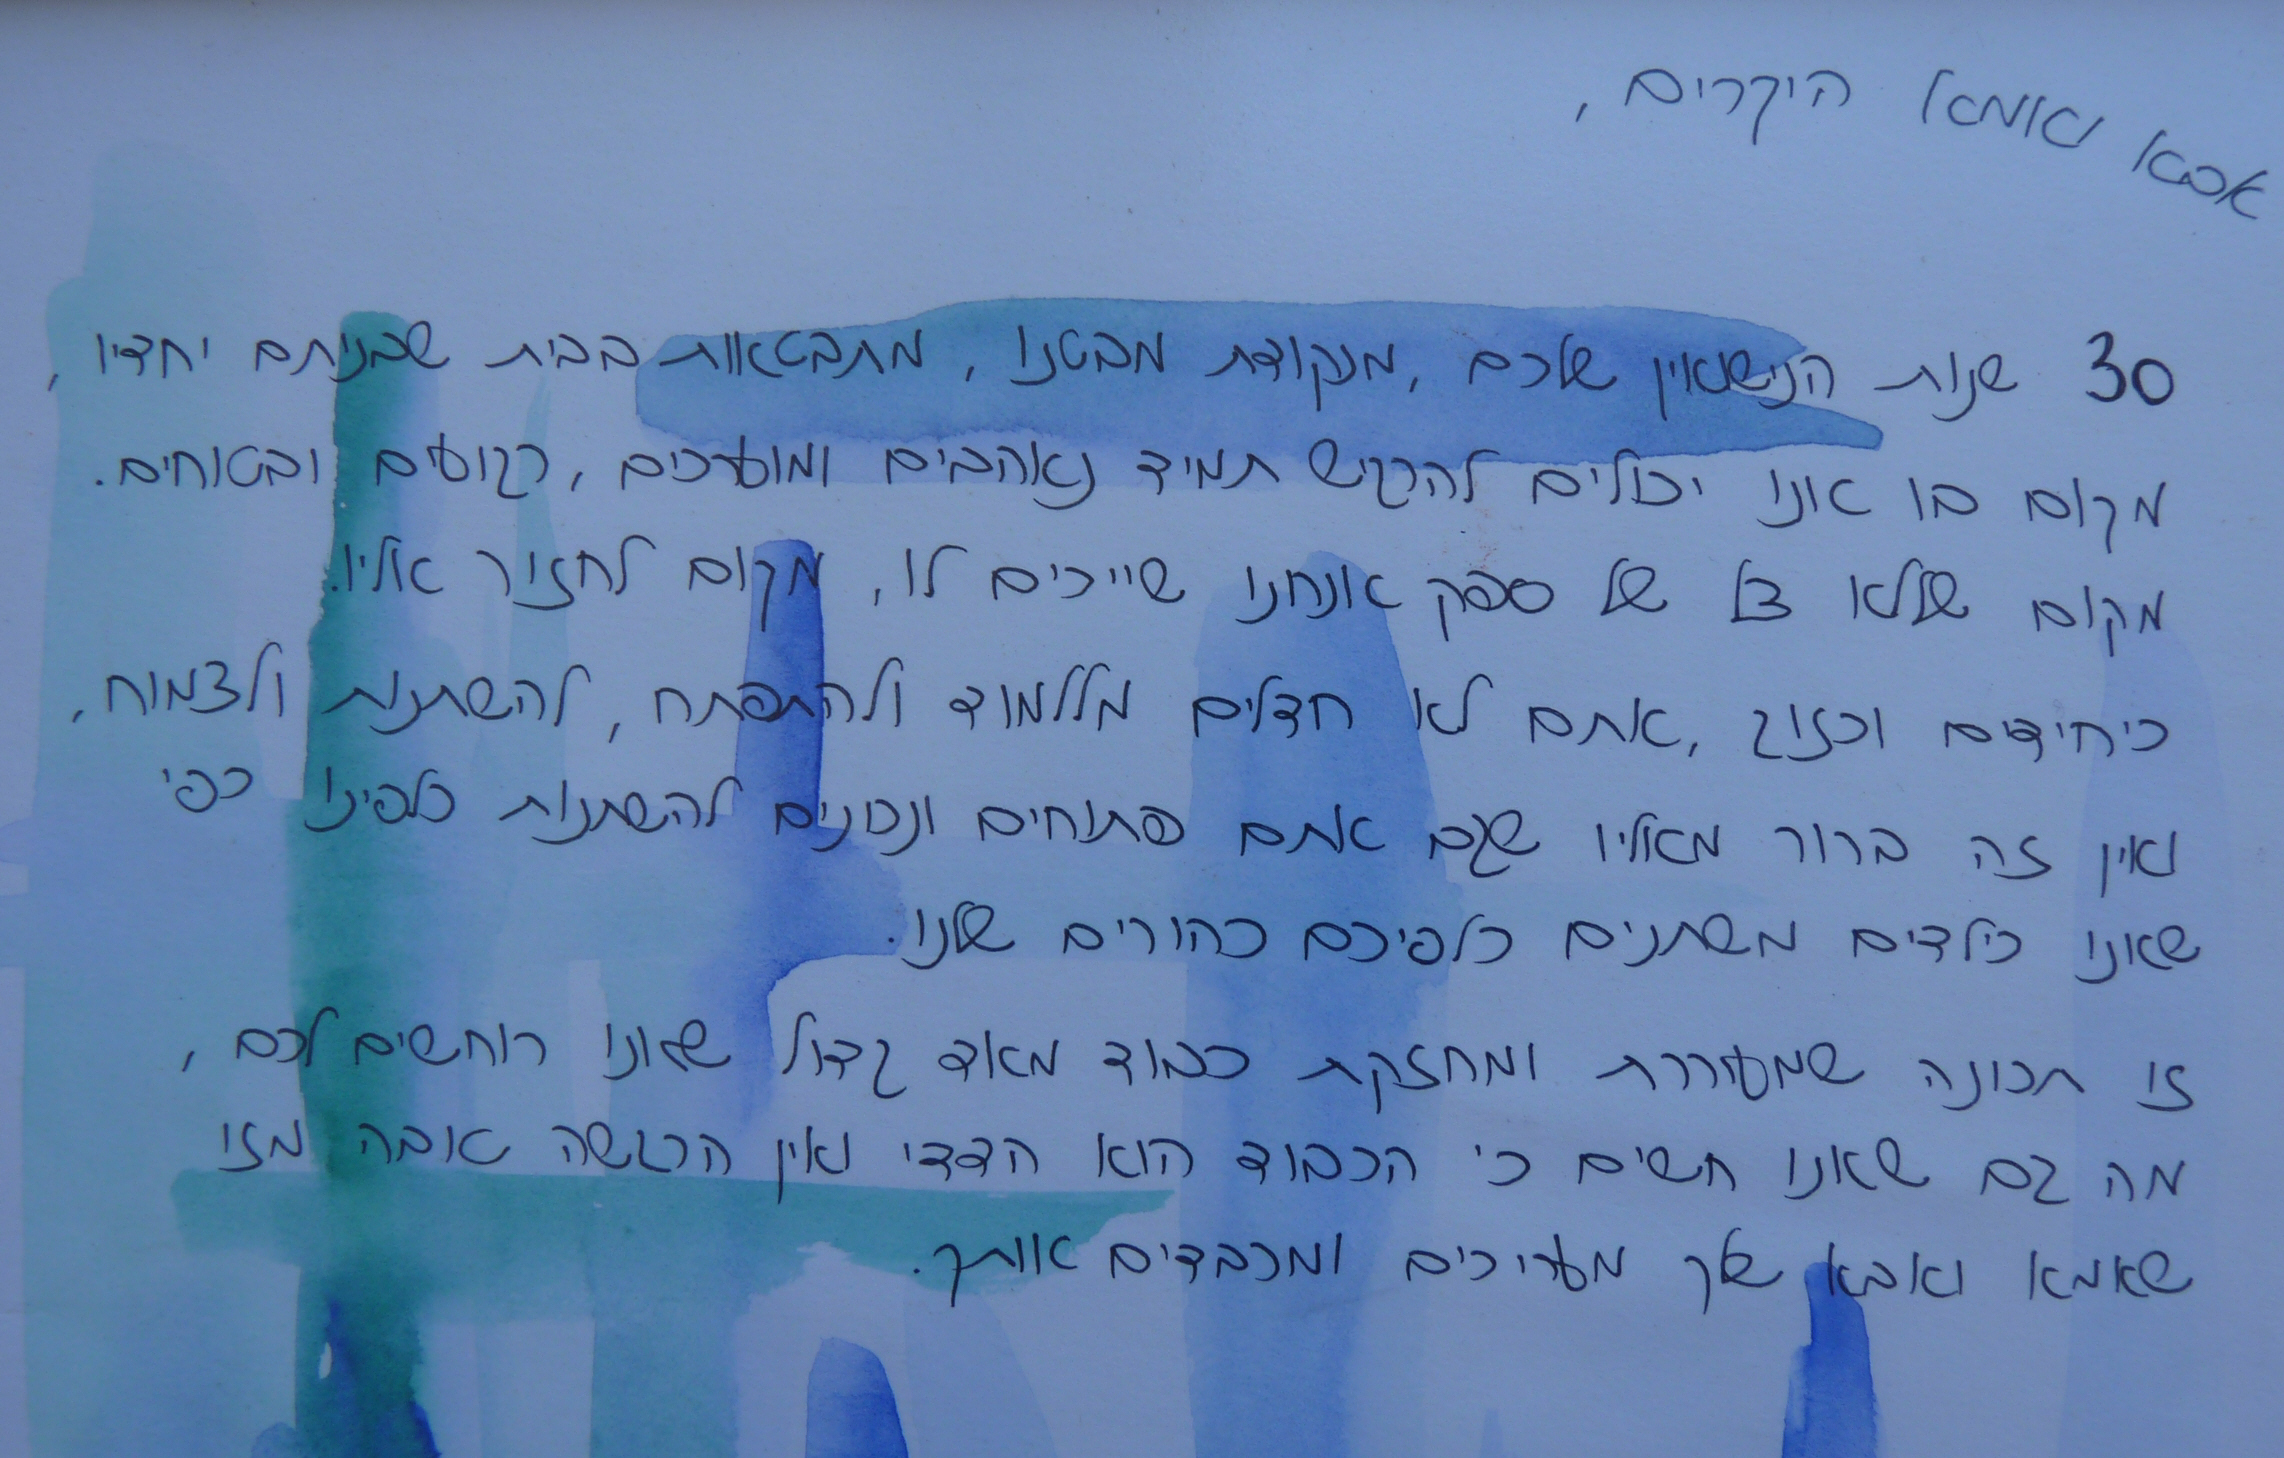 אבא ואמא היקרים,
30 שנות הנישואין שלכם, מנקודת מבטנו, מתבטאות בבית שבניתם יחדיו,
מקום בו אנו יכולים להרגיש תמיד נאהבים ומוערכים, רגועים ובטוחים.
מקום שללא צל של ספק אנחנו שייכים לו, מקום לחזור אליו.
כיחידים וכזוג, אתם לא חדלים מללמוד ולהתפתח, להשתנות ולצמוח,
ואין זה ברור מאליו שגם אתם פתוחים ונכונים להשתנות כלפינו כפי
שאנו כילדים משתנים כלפיכם כהורים שלנו.
זו תכונה שמעוררת ומחזקת כבוד מאד גדול שאנו רוחשים לכם,
מה גם שאנו חשים כי הכבוד הוא הדדי ואין הרגשה טובה מזו
שאמא ואבא שלך מעריכים ומכבדים אותך.